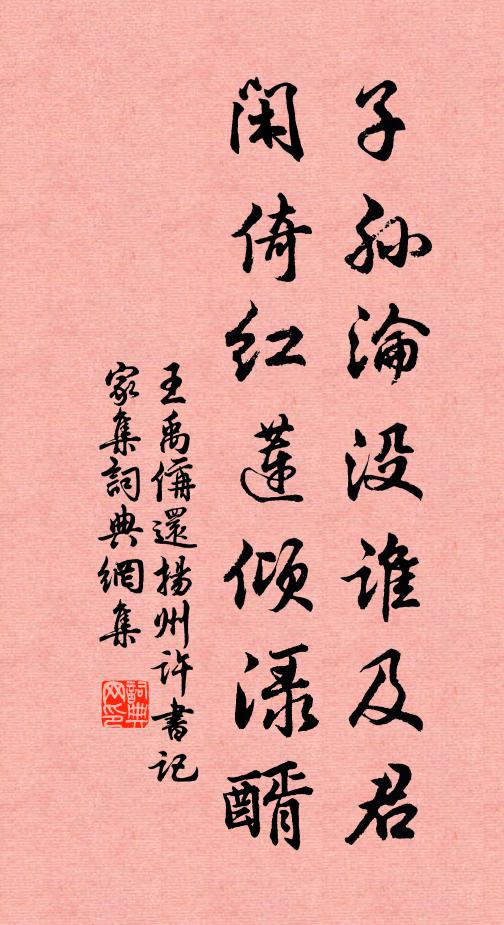 子孙淪没谁及君
闲倚红蓮倾渌醑
王禹偁還揚州许書记
家集詞典網集
詞典网印